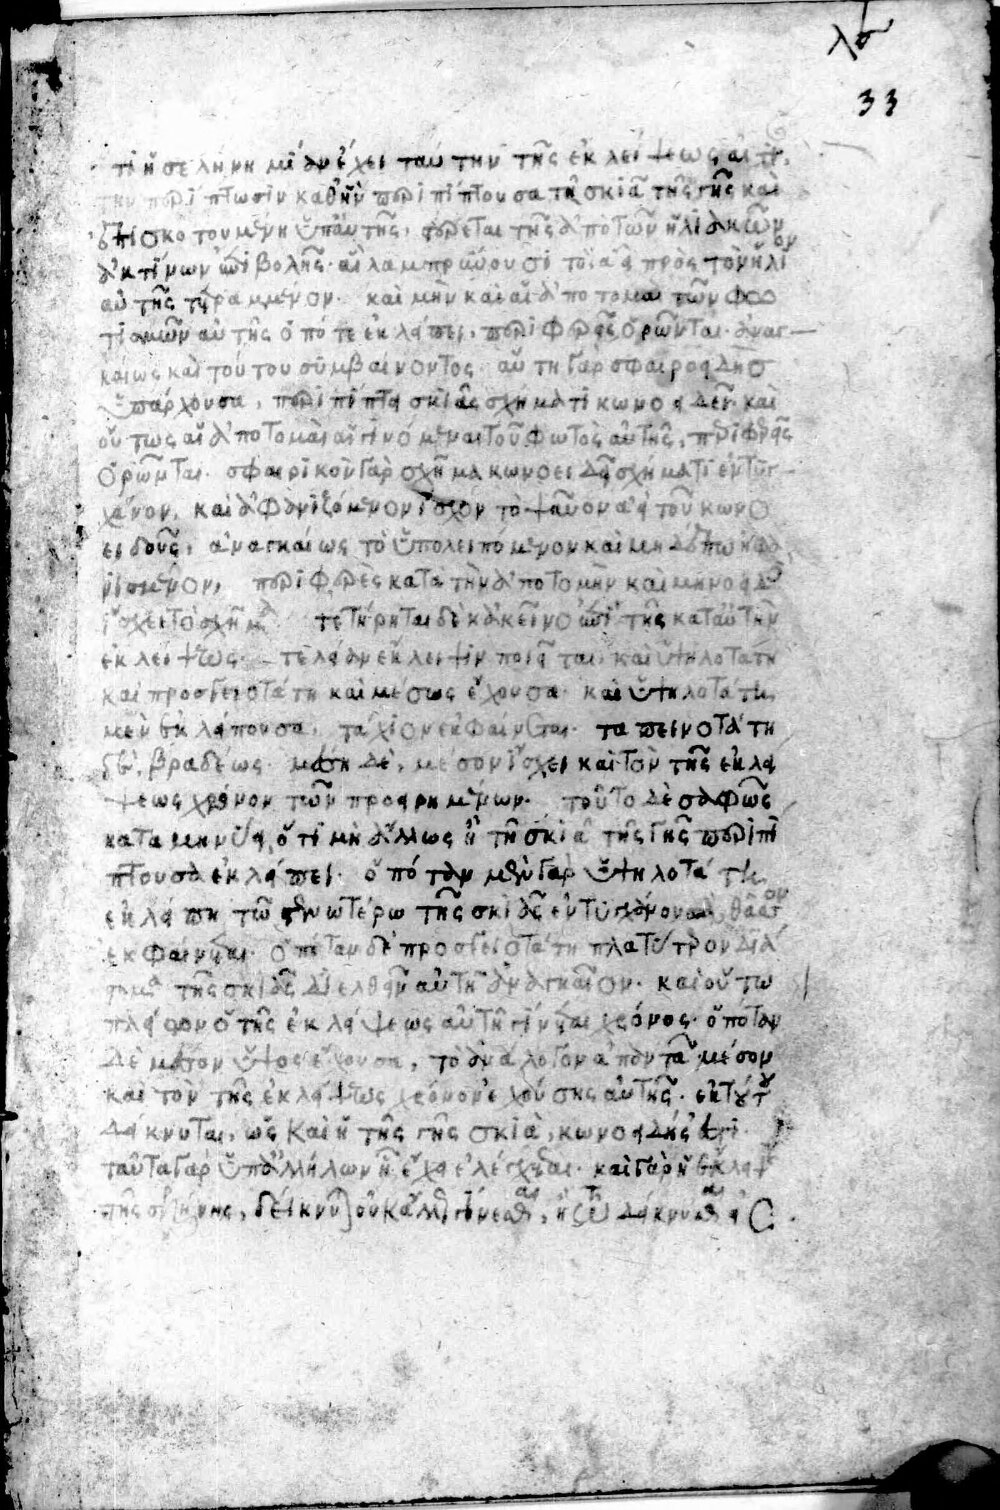 λγ
33
τι ἡ σελήνη μίαν ἔχει ταύτην τῆς ἐκλείψεως αἰτί
την περίπτωσιν καθ' ἣν περιπίπτουσα τῇ σκιᾷ τῆς γῆς καὶ
ἐπισκοτουμένη ὑπ' αὐτῆς, στέρεται τῆς ἀπὸ τῶν ἡλιακῶν
ἀκτίνων ἐπιβολῆς. αἳ λαμπρύουσι τὸ ἀεὶ πρὸς τὸν ἥλιον
αὐτῆς τετραμμένον. καὶ μὴν καὶ αἱ ἀποτομαὶ τῶν φω
τισμῶν αὐτῆς ὁπότε ἐκλείπει, περιφερεῖς ὁρῶνται. ἀναγ
καίως καὶ τούτου συμβαίνοντος. αὐτὴ γὰρ σφαιροειδὴς
ὑπάρχουσα, περιπίπτει σκιᾶς σχήματι κωνοειδεῖ. καὶ
οὕτως αἱ ἀποτομαὶ αἱ γινόμεναι τοῦ φωτὸς αὐτῆς, περιφερεῖς
ὁρῶνται. σφαιρικὸν γὰρ σχῆμα κωνοειδεῖ σχήματι ἐντυγ
χάνον, καὶ ἀφανιζόμενον ἴσχον τὸ ψαῦον ἀεὶ τοῦ κωνο
ειδοῦς, ἀναγκαίως τὸ ὑπολειπόμενον καὶ μηδέπω ἠφα
νισμένον, περιφερὲς κατὰ τὴν ἀποτομὴν καὶ μηνοειδὲς
ἴσχει τὸ σχῆμα τετήρηται δὲ κἀκεῖνο ἐπὶ τῆς κατ' αὐτὴν
ἐκλείψεως. τελείαν ἔκλειψιν ποιεῖται καὶ ὑψηλοτάτη
καὶ προσγειοτάτη καὶ μέσως ἔχουσα. καὶ ὑψηλοτάτη
μὲν ἐκλείπουσα, τάχιον ἐκφαίνεται. ταπεινοτάτη
δὲ, βραδέως. μέση δὲ, μέσον ἴσχει καὶ τὸν τῆς ἐκλεί
ψεως χρόνον τῶν προειρημένων. τοῦτο δὲ σαφῶς
καταμηνύει, ὅτι μὴ ἄλλως ἢ τῇ σκιᾷ τῆς γῆς περιπί
πτουσα ἐκλείπει. ὁπόταν μὲν γὰρ ὑψηλοτάτη
ἐκλείπῃ τῷ στενωτέρῳ τῆς σκιᾶς ἐντυγχάνουσα, θᾶττον
ἐκφαίνεται. ὁπόταν δὲ προσγειοτάτη πλατύτερον διά
στημα τῆς σκιᾶς διελθεῖν αὐτὴν ἀναγκαῖον. καὶ οὕτω
πλείων ὁ τῆς ἐκλείψεως αὐτῇ γίνεται χρόνος. ὁπόταν
δὲ μέσον ὕψος ἔχουσα, τὸ ἀνάλογον ἀπαντᾷ μέσον
καὶ τὸν τῆς ἐκλείψεως χρόνον ἐχούσης αὐτῆς. ἐκ τούτου
δείκνυται, ὡς καὶ ἡ τῆς γῆς σκιὰ, κωνοειδής ἐστι.
ταῦτα γὰρ ὑπ' ἀλλήλων ἔχει ἐλέγχεσθαι. καὶ γὰρ ἡ ἔκλειψις
τῆς σελήνης, δείκνυται οὐκ ἄλλως γίνεσθαι,